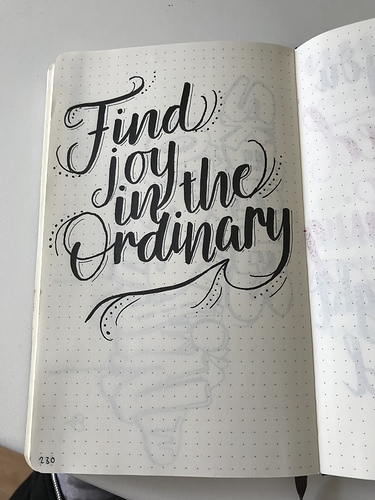 Find
joy
in the
Ordinary
230